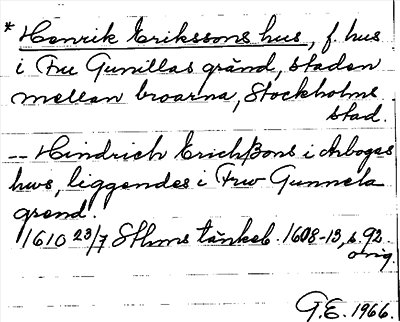 * Henrik Erikssons hus, f. hus
i Fru Gunillas gränd, staden
mellan broarna, Stockholms
stad.
-- Hindrich Erichßons i Arboges
hws, liggendes i Frw Gunnela
grend.
1610 23/7 Sthms tänkeb. 1608-13, s. 92.
orig.
G.E. 1966.